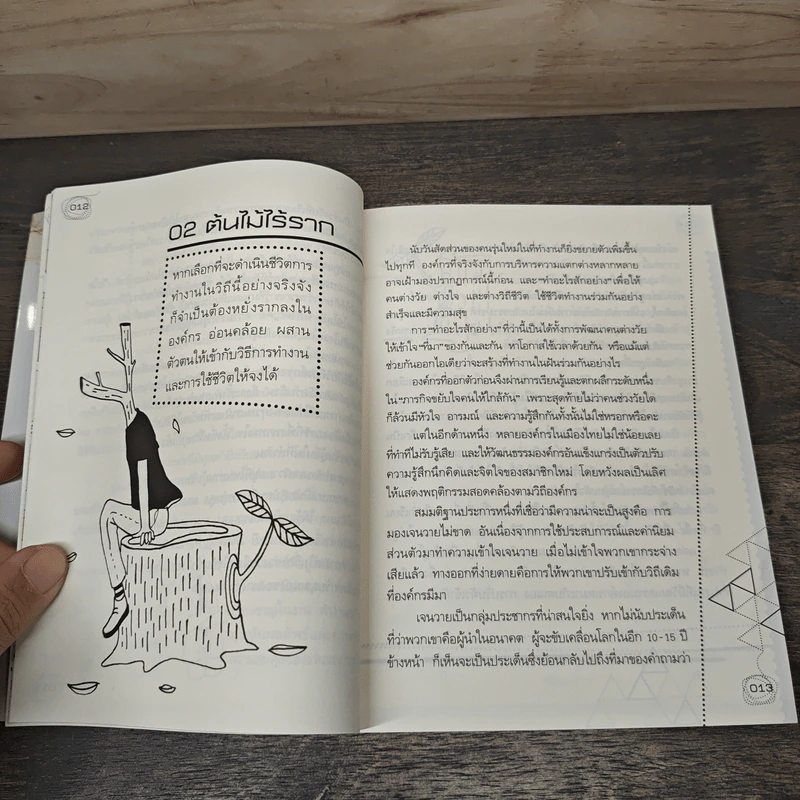 012
02 ต้นไม้ไร้ราก
หากเลือกที่จะดำเนินชีวิตการ
ทำงานในวิถีนี้อย่างจริงจัง
ก็จำเป็นต้องหยั่งรากลงใน
องค์กร อ่อนคล้อย ผสาน
ตัวตนให้เข้ากับวิธีการทำงาน
และการใช้ชีวิตให้จงได้
นับวันสัดส่วนของคนรุ่นใหม่ในที่ทำงานก็ยิ่งขยายตัวเพิ่มขึ้น
ไปทุกที องค์กรที่จริงจังกับการบริหารความแตกต่างหลากหลาย
อาจเฝ้ามองปรากฏการณ์นี้ก่อน และ“ทำอะไรสักอย่าง”เพื่อให้
คนต่างวัย ต่างใจ และต่างวิถีชีวิต ใช้ชีวิตทำงานร่วมกันอย่าง
สำเร็จและมีความสุข
การ“ทำอะไรสักอย่าง”ที่ว่านี้เป็นได้ทั้งการพัฒนาคนต่างวัย
ให้เข้าใจ“ที่มา”ของกันและกัน หาโอกาสใช้เวลาด้วยกัน หรือแม้แต่
ช่วยกันออกไอเดียว่าจะสร้างที่ทำงานในฝันร่วมกันอย่างไร
องค์กรที่ออกตัวก่อนจึงผ่านการเรียนรู้และตกผลึกระดับหนึ่ง
ใน“ภารกิจขยับใจคนให้ใกล้กัน” เพราะสุดท้ายไม่ว่าคนช่วงวัยใด
ก็ล้วนมีหัวใจ อารมณ์ และความรู้สึกกันทั้งนั้นไม่ใช่หรอกหรือคะ
แต่ในอีกด้านหนึ่ง หลายองค์กรในเมืองไทยไม่ใช่น้อยเลย
ที่ทำทีไม่รับรู้เสีย และให้วัฒนธรรมองค์กรอันแข็งแกร่งเป็นตัวปรับ
ความรู้สึกนึกคิดและจิตใจของสมาชิกใหม่ โดยหวังผลเป็นเลิศ
ให้แสดงพฤติกรรมสอดคล้องตามวิถีองค์กร
สมมติฐานประการหนึ่งที่เชื่อว่ามีความน่าจะเป็นสูงคือ การ
มองเจนวายไม่ขาด อันเนื่องจากการใช้ประสบการณ์และค่านิยม
ส่วนตัวมาทำความเข้าใจเจนวาย เมื่อไม่เข้าใจพวกเขากระจ่าง
เสียแล้ว ทางออกที่ง่ายดายคือการให้พวกเขาปรับเข้ากับวิถีเดิม
ที่องค์กรมีมา
เจนวายเป็นกลุ่มประชากรที่น่าสนใจยิ่ง หากไม่นับประเด็น
ที่ว่าพวกเขาคือผู้นำในอนาคต ผู้จะขับเคลื่อนโลกในอีก 10-15 ปี
ข้างหน้า ก็เห็นจะเป็นประเด็นซึ่งย้อนกลับไปถึงที่มาของคำถามว่า
013